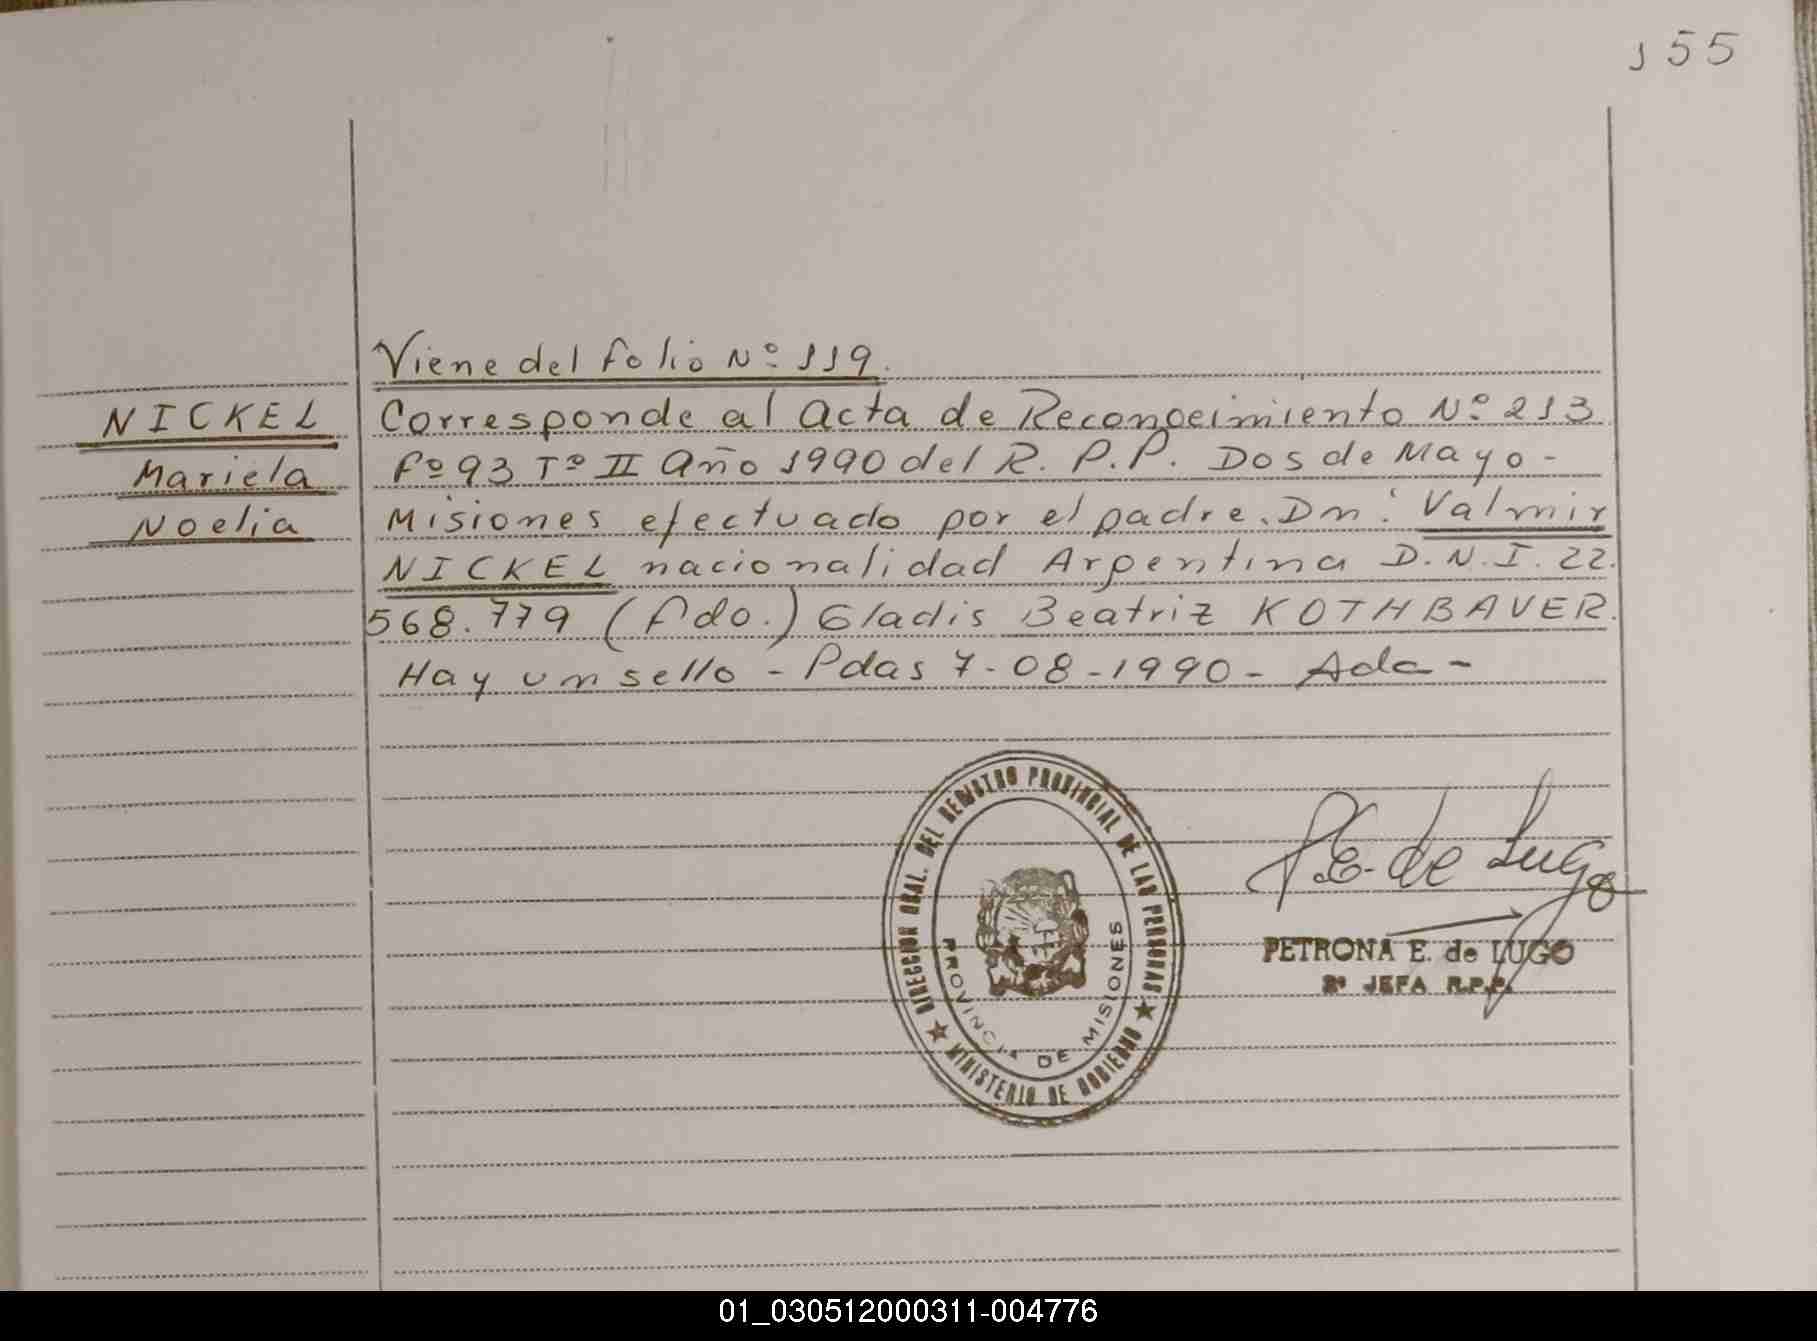 155
Viene del folio Nº 119.
NICKEL
Mariela
Noelia
Corresponde al Acta de Reconocimiento Nº 213
Fº 93 Tº II Año 1990 del R. P. P. Dos de Mayo -
Misiones efectuado por el padre. Dn: Valmir
NICKEL nacionalidad Argentina D.N.I. 22.
568.779 (fdo.) Gladis Beatriz KOTHBAUER.
Hay un sello - Pdas 7-08-1990 - Adc -
DIRECCION GRAL. DEL REGISTRO PROVINCIAL DE LAS PERSONAS
MINISTERIO DE GOBIERNO
PROVINCIA DE MISIONES
P.E. de Lugo
PETRONA E. de LUGO
2º JEFA R.P.P.
01_030512000311-004776